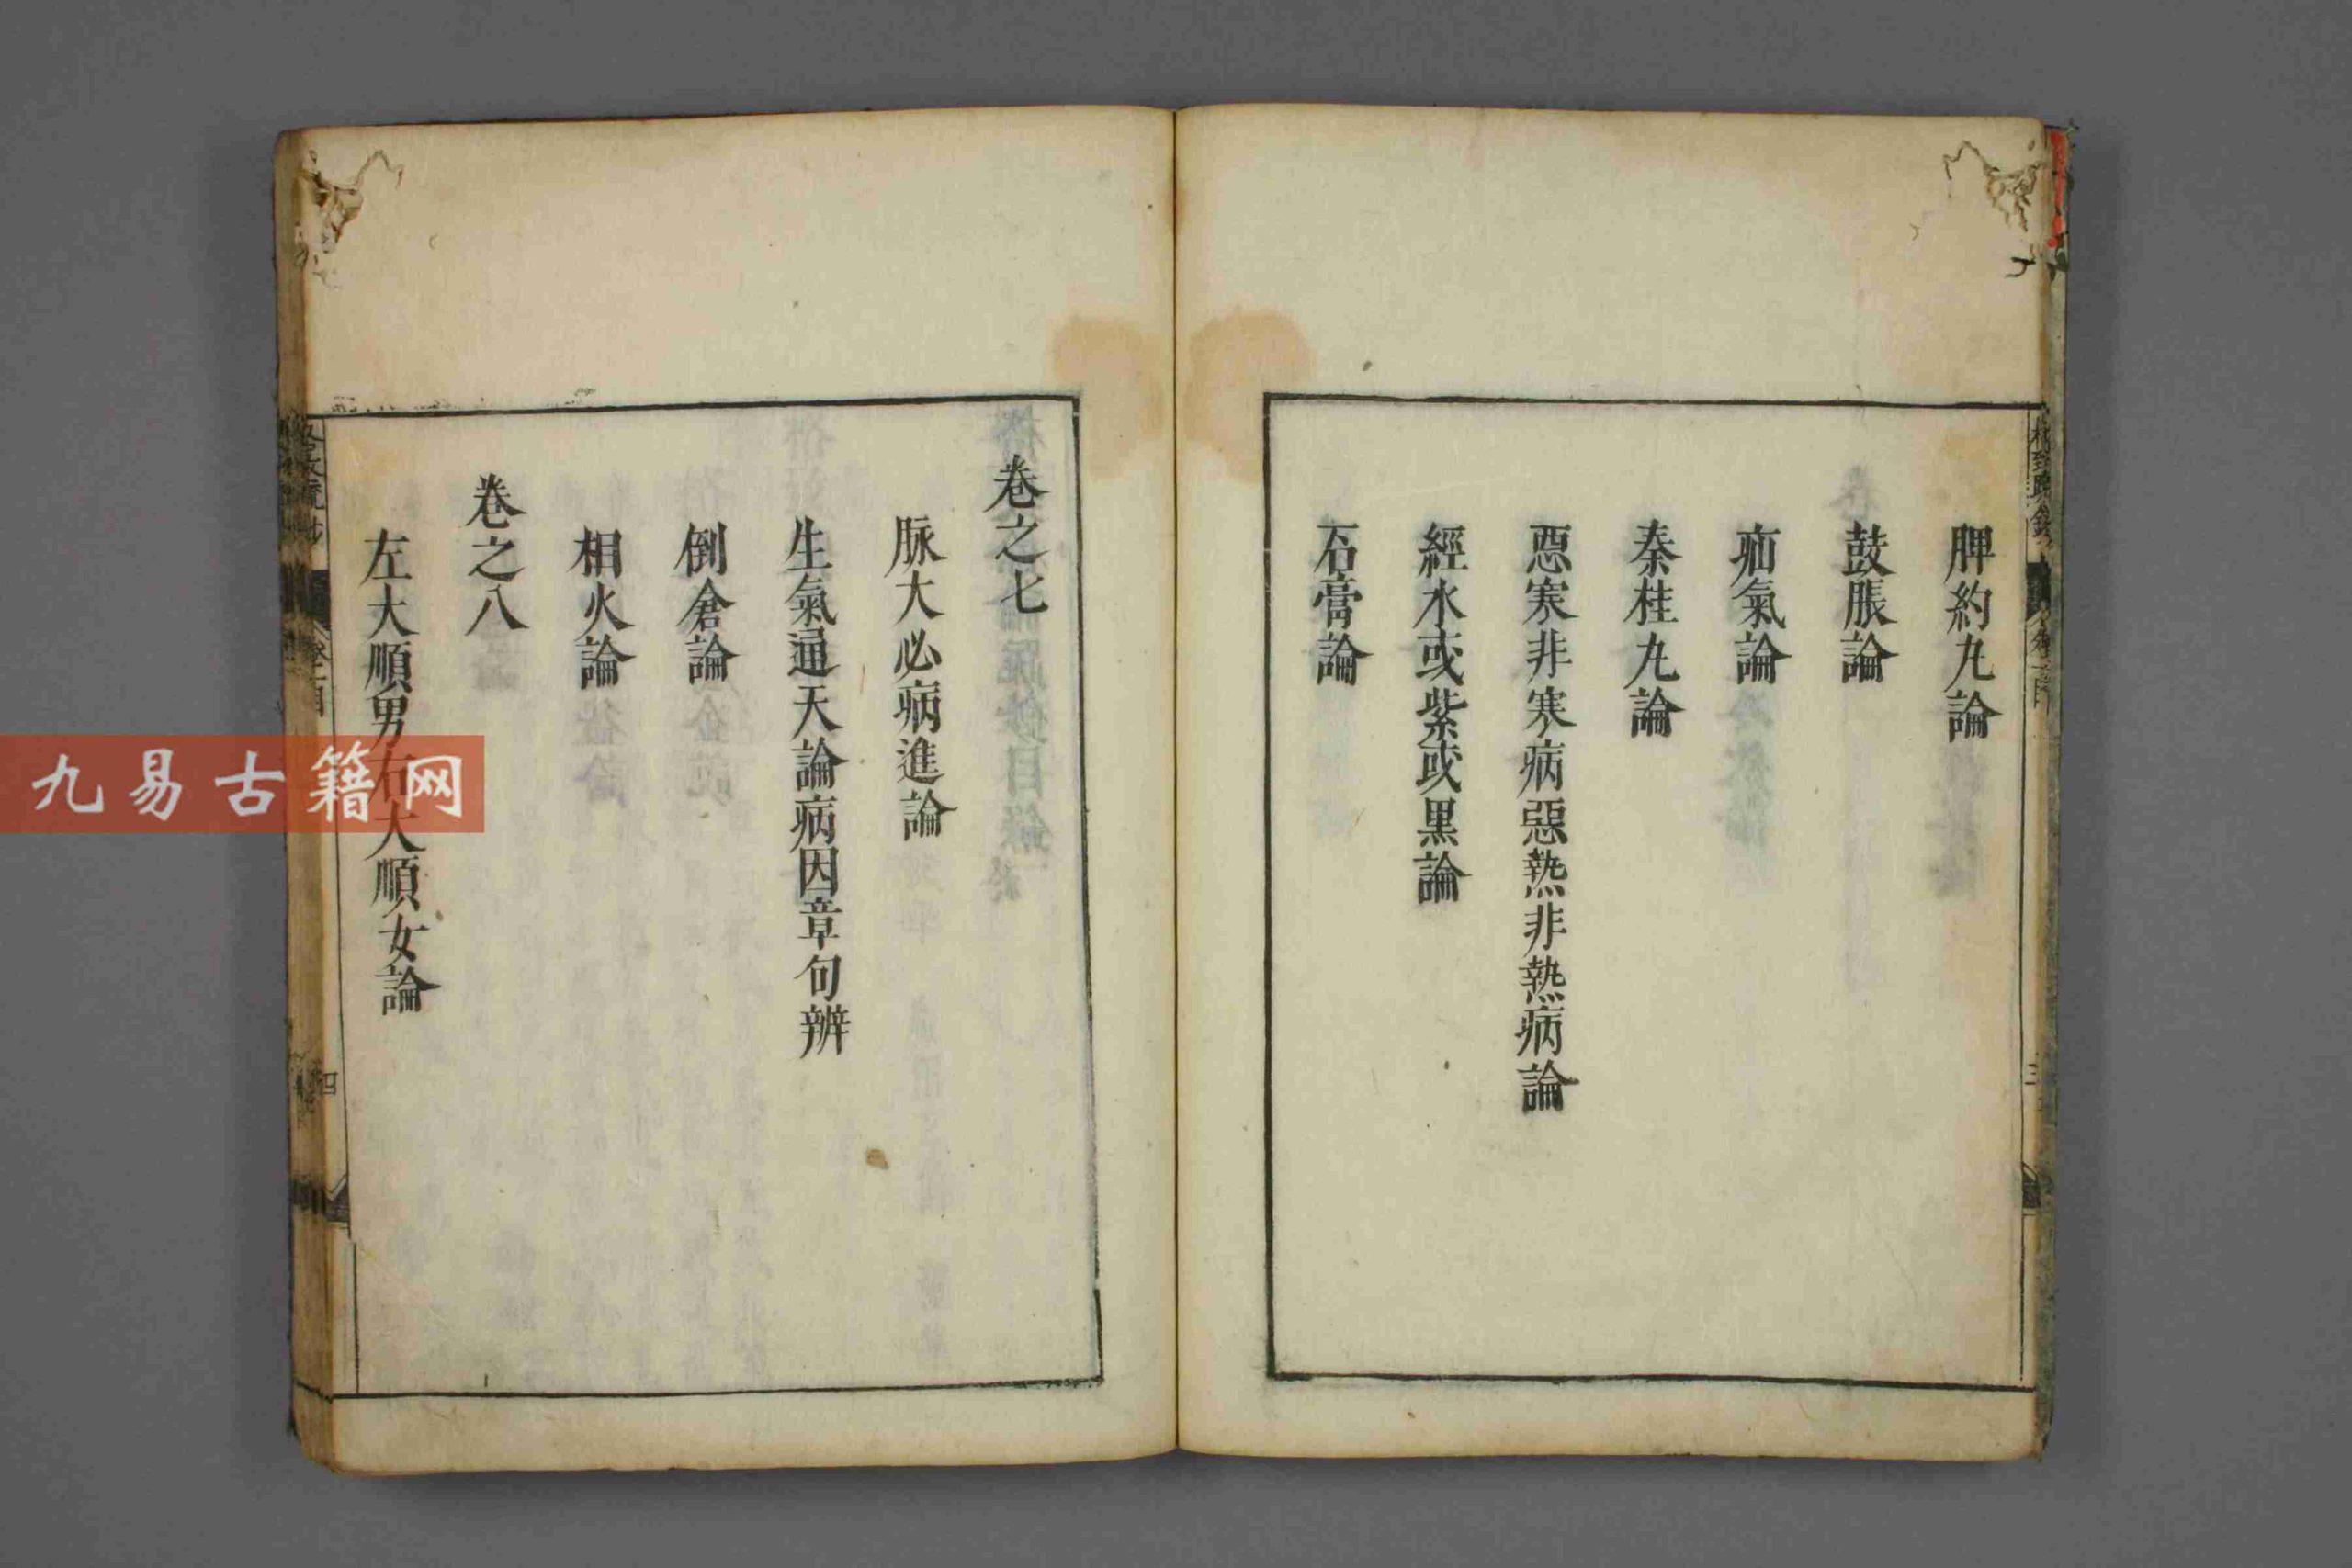 脾約丸論
鼓脹論
疝氣論
秦桂丸論
惡寒非寒病惡熱非熱病論
經水或紫或黑論
石膏論
卷之七
脉大必病進論
生氣通天論病因章句辨
倒倉論
相火論
卷之八
左大順男右大順女論
四
九易古籍网